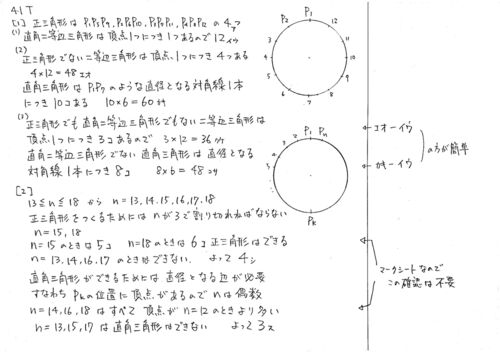 41T
[1] 正三角形は P1P5P9, P2P6P10, P3P7P11, P4P8P12 の 4ア
(1) 直角二等辺三角形は頂点1つにつき1つあるので12イウ
(2)
正三角形でない二等辺三角形は頂点1つにつき4つある
4×12=48エオ
直角三角形は P1P7 のような直径となる対角線1本
につき10コある 10×6=60カキ
(3)
正三角形でも直角二等辺三角形でもない二等辺三角形は
頂点1つにつき3コあるので 3×12=36
直角二等辺三角形でない直角三角形は直径となる
対角線1本につき8コ 8×6=48
[2]
13≦n≦18 から n=13,14,15,16,17,18
正三角形をつくるためには nが3で割り切れねばならない
n=15,18
n=15のときは5コ n=18のときは6コ正三角形はできる
n=13,14,16,17のときはできない. よって4シ
直角三角形ができるためには直径となる辺が必要
すなわち Pkの位置に頂点があるので nは偶数
n=14,16,18 はすべて頂点が n=12のときより多い
n=13,15,17 は直角三角形はできない よって3ス
P1
P2
12
3
11
4
10
5
9
6
8
7
P1
Pn
2
3
4
5
Pk
エオーイウ
カキーイウ
の方が簡単
マークシートなので
この確認は不要